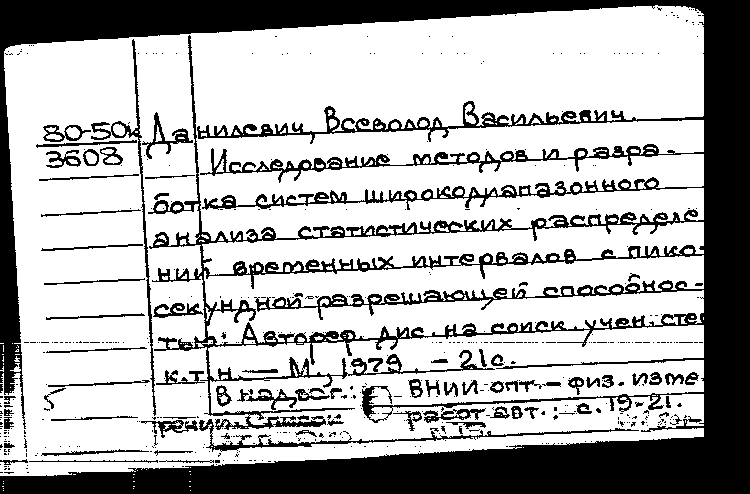 80-50к Данилевич, Всеволод Васильевич.
3608 Исследование методов и разра-
ботка систем широкодиапазонного
анализа статистических распределе
ний временных интервалов с пико-
секундной разрешающей способнос-
тью: Автореф. дис. на соиск. учен. степ
к.т.н. — М., 1979. - 21с.
В надзаг.: ВНИИ опт.-физ. изме-
рений. Список работ авт.: с. 19-21.